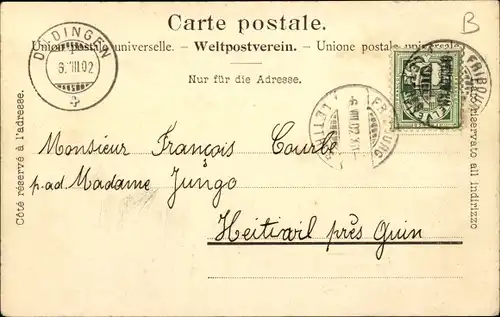 Carte postale.
Union postale universelle. – Weltpostverein. – Unione postale universale
Nur für die Adresse.
B
DÜDINGEN
6.VIII.02
FRIBOURG
Côté réservé à l'adresse.
Lato riservato all indirizzo
Monsieur François Courbe
p. ad. Madame Jungo
Heitiwil près Guin